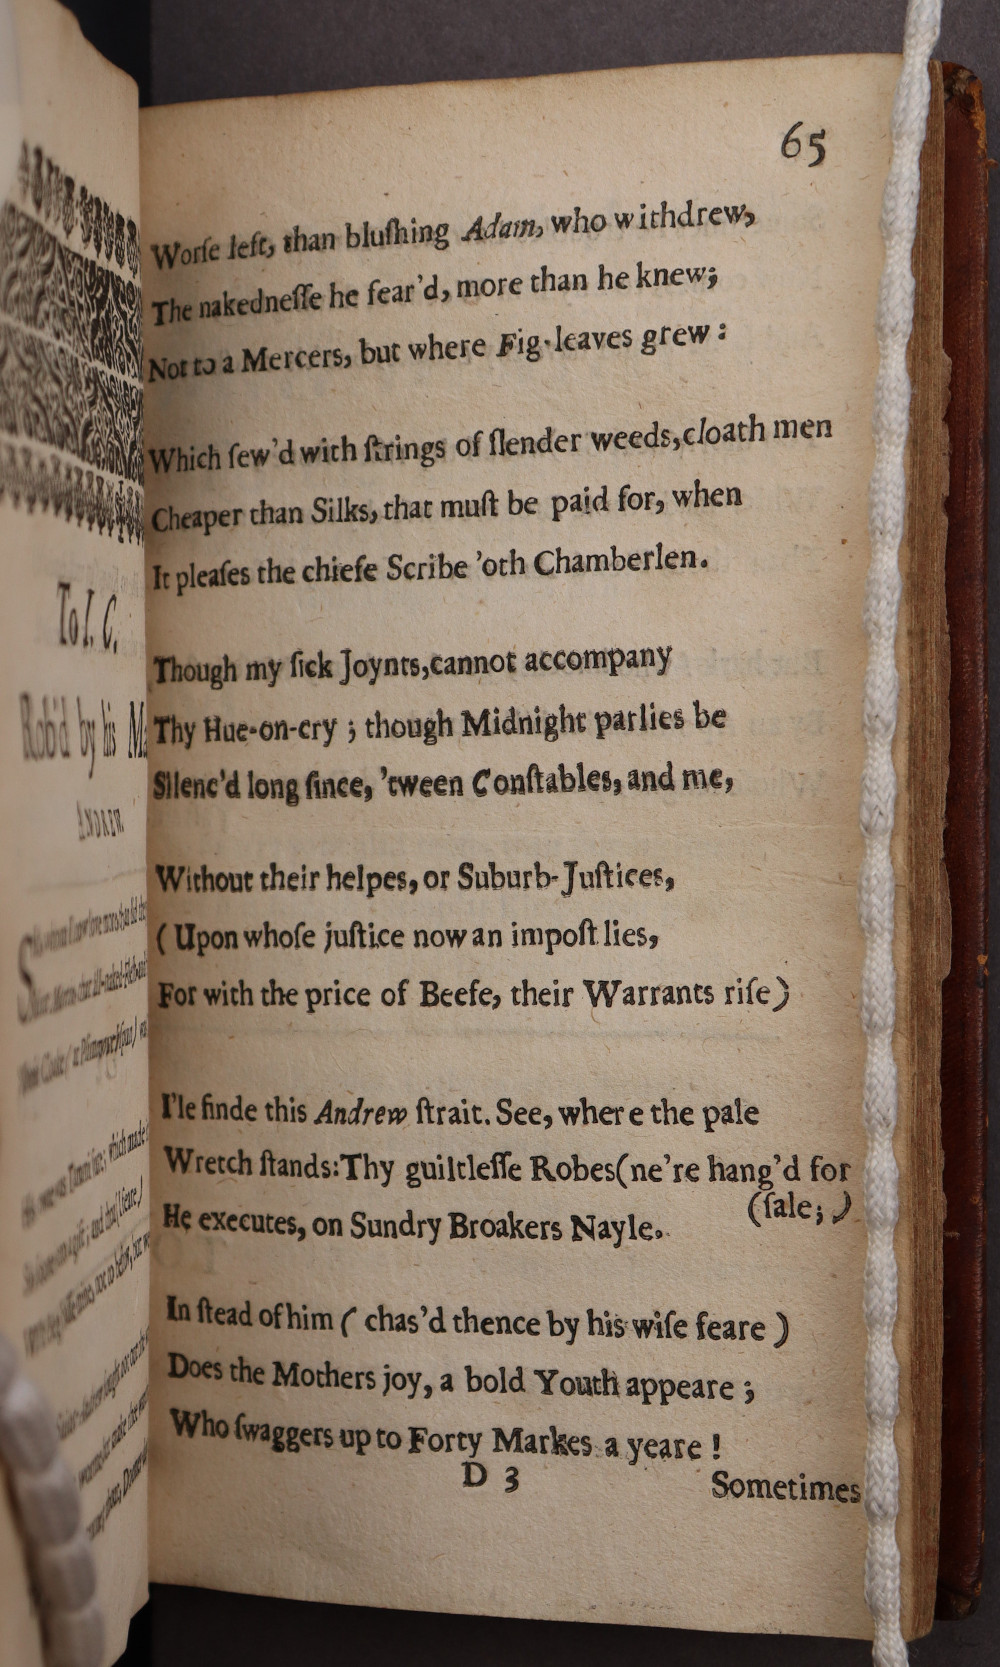 To I. C.
Rob'd by his
ANDREW.
65
Worſe left, than bluſhing Adam, who withdrew,
The nakedneſſe he fear'd, more than he knew;
Not to a Mercers, but where Fig-leaves grew:
Which ſew'd with ſtrings of ſlender weeds,cloath men
Cheaper than Silks, that muſt be paid for, when
It pleaſes the chiefe Scribe 'oth Chamberlen.
Though my ſick Joynts,cannot accompany
Thy Hue-on-cry ; though Midnight parlies be
Silenc'd long ſince, 'tween Conſtables, and me,
Without their helpes, or Suburb-Juſtices,
( Upon whoſe juſtice now an impoſt lies,
For with the price of Beefe, their Warrants riſe)
I'le finde this Andrew ſtrait. See, where the pale
Wretch ſtands:Thy guiltleſſe Robes(ne're hang'd for
(ſale; )
He executes, on Sundry Broakers Nayle.
In ſtead of him ( chas'd thence by his wiſe feare )
Does the Mothers joy, a bold Youth appeare ;
Who ſwaggers up to Forty Markes a yeare !
D 3
Sometimes